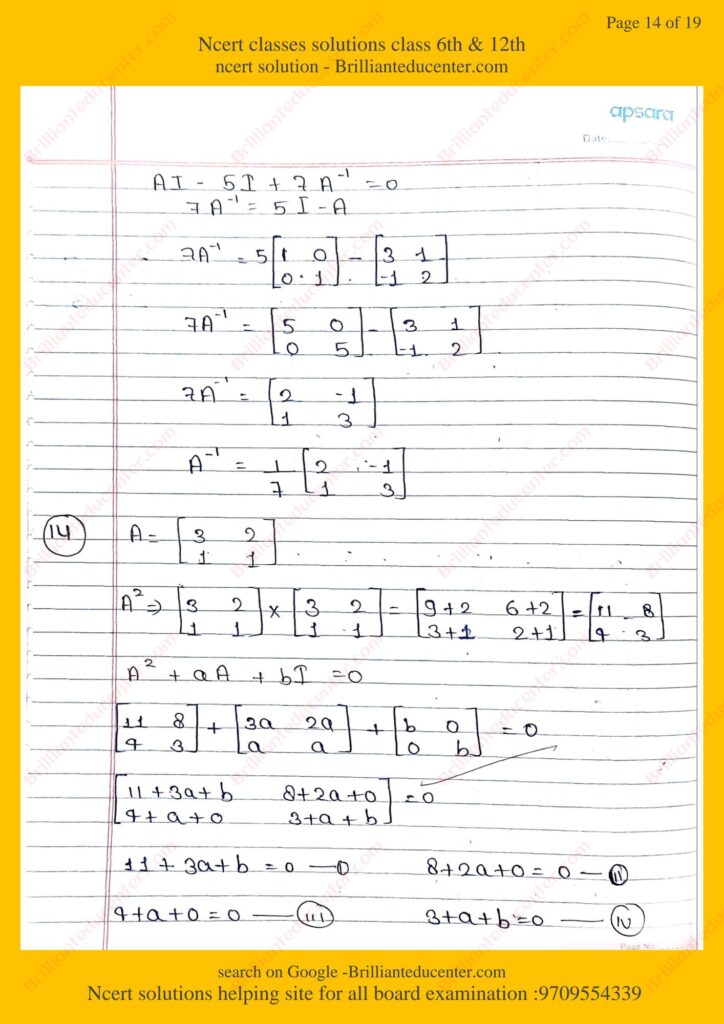 Page 14 of 19
Ncert classes solutions class 6th & 12th
ncert solution - Brillianteducenter.com
apsara
Date:
AI - 5I + 7A⁻¹ = 0
7A⁻¹ = 5I - A
7A⁻¹ = 5 [1 0; 0 1] - [3 1; -1 2]
7A⁻¹ = [5 0; 0 5] - [3 1; -1 2]
7A⁻¹ = [2 -1; 1 3]
A⁻¹ = 1/7 [2 -1; 1 3]
(14) A = [3 2; 1 1]
A² ⇒ [3 2; 1 1] × [3 2; 1 1] = [9+2 6+2; 3+1 2+1] = [11 8; 4 3]
A² + aA + bI = 0
[11 8; 4 3] + [3a 2a; a a] + [b 0; 0 b] = 0
[11+3a+b 8+2a+0; 4+a+0 3+a+b] = 0
11+3a+b = 0 — (I) 8+2a+0 = 0 — (II)
4+a+0 = 0 — (III) 3+a+b = 0 — (IV)
Page No.
search on Google -Brillianteducenter.com
Ncert solutions helping site for all board examination :9709554339